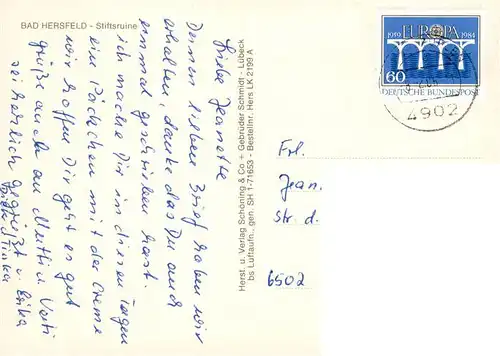 BAD HERSFELD - Stiftsruine
Liebe Jeanette
Deinen lieben Brief haben wir
erhalten, danke das Du auch
einmal geschrieben hast.
ich mache Dir in diesen Tagen
ein Päckchen mit der Creme
wir hoffen Dir geht es gut
grüße auch an Mutti u. Vati
sei herzlich gegrüßt v. Erika
Herst. u. Verlag Schöning & Co + Gebrüder Schmidt - Lübeck
bs Luftaufn., gen. SH 1-71653 - Bestellnr. Hers LK 2199 A
1919 EUROPA 1984
60
DEUTSCHE BUNDESPOST
4902
Frl.
Jean.
Str d.
6502